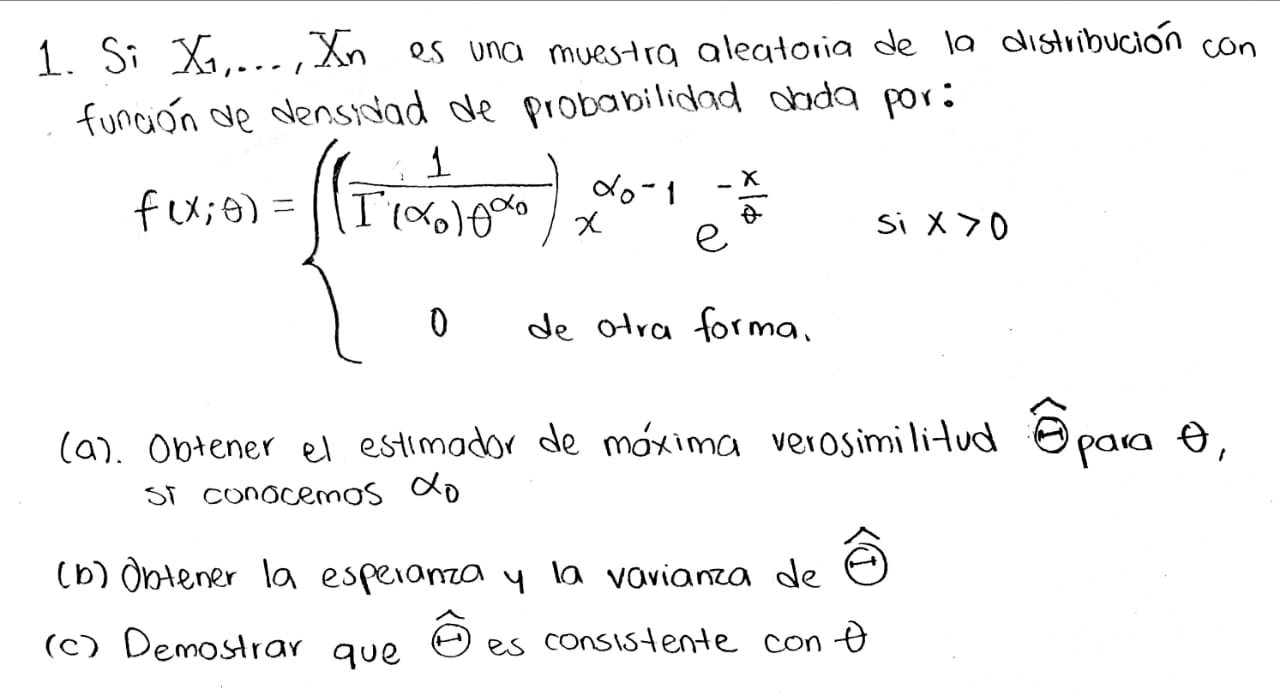 1. Si X₁,..., Xn es una muestra aleatoria de la distribución con
función de densidad de probabilidad dada por:
f(x;θ) = { (1 / (Γ(α₀)θ^α₀)) x^(α₀-1) e^(-x/θ) si x > 0
0 de otra forma.
(a). Obtener el estimador de máxima verosimilitud Θ̂ para θ,
si conocemos α₀
(b) Obtener la esperanza y la varianza de Θ̂
(c) Demostrar que Θ̂ es consistente con θ